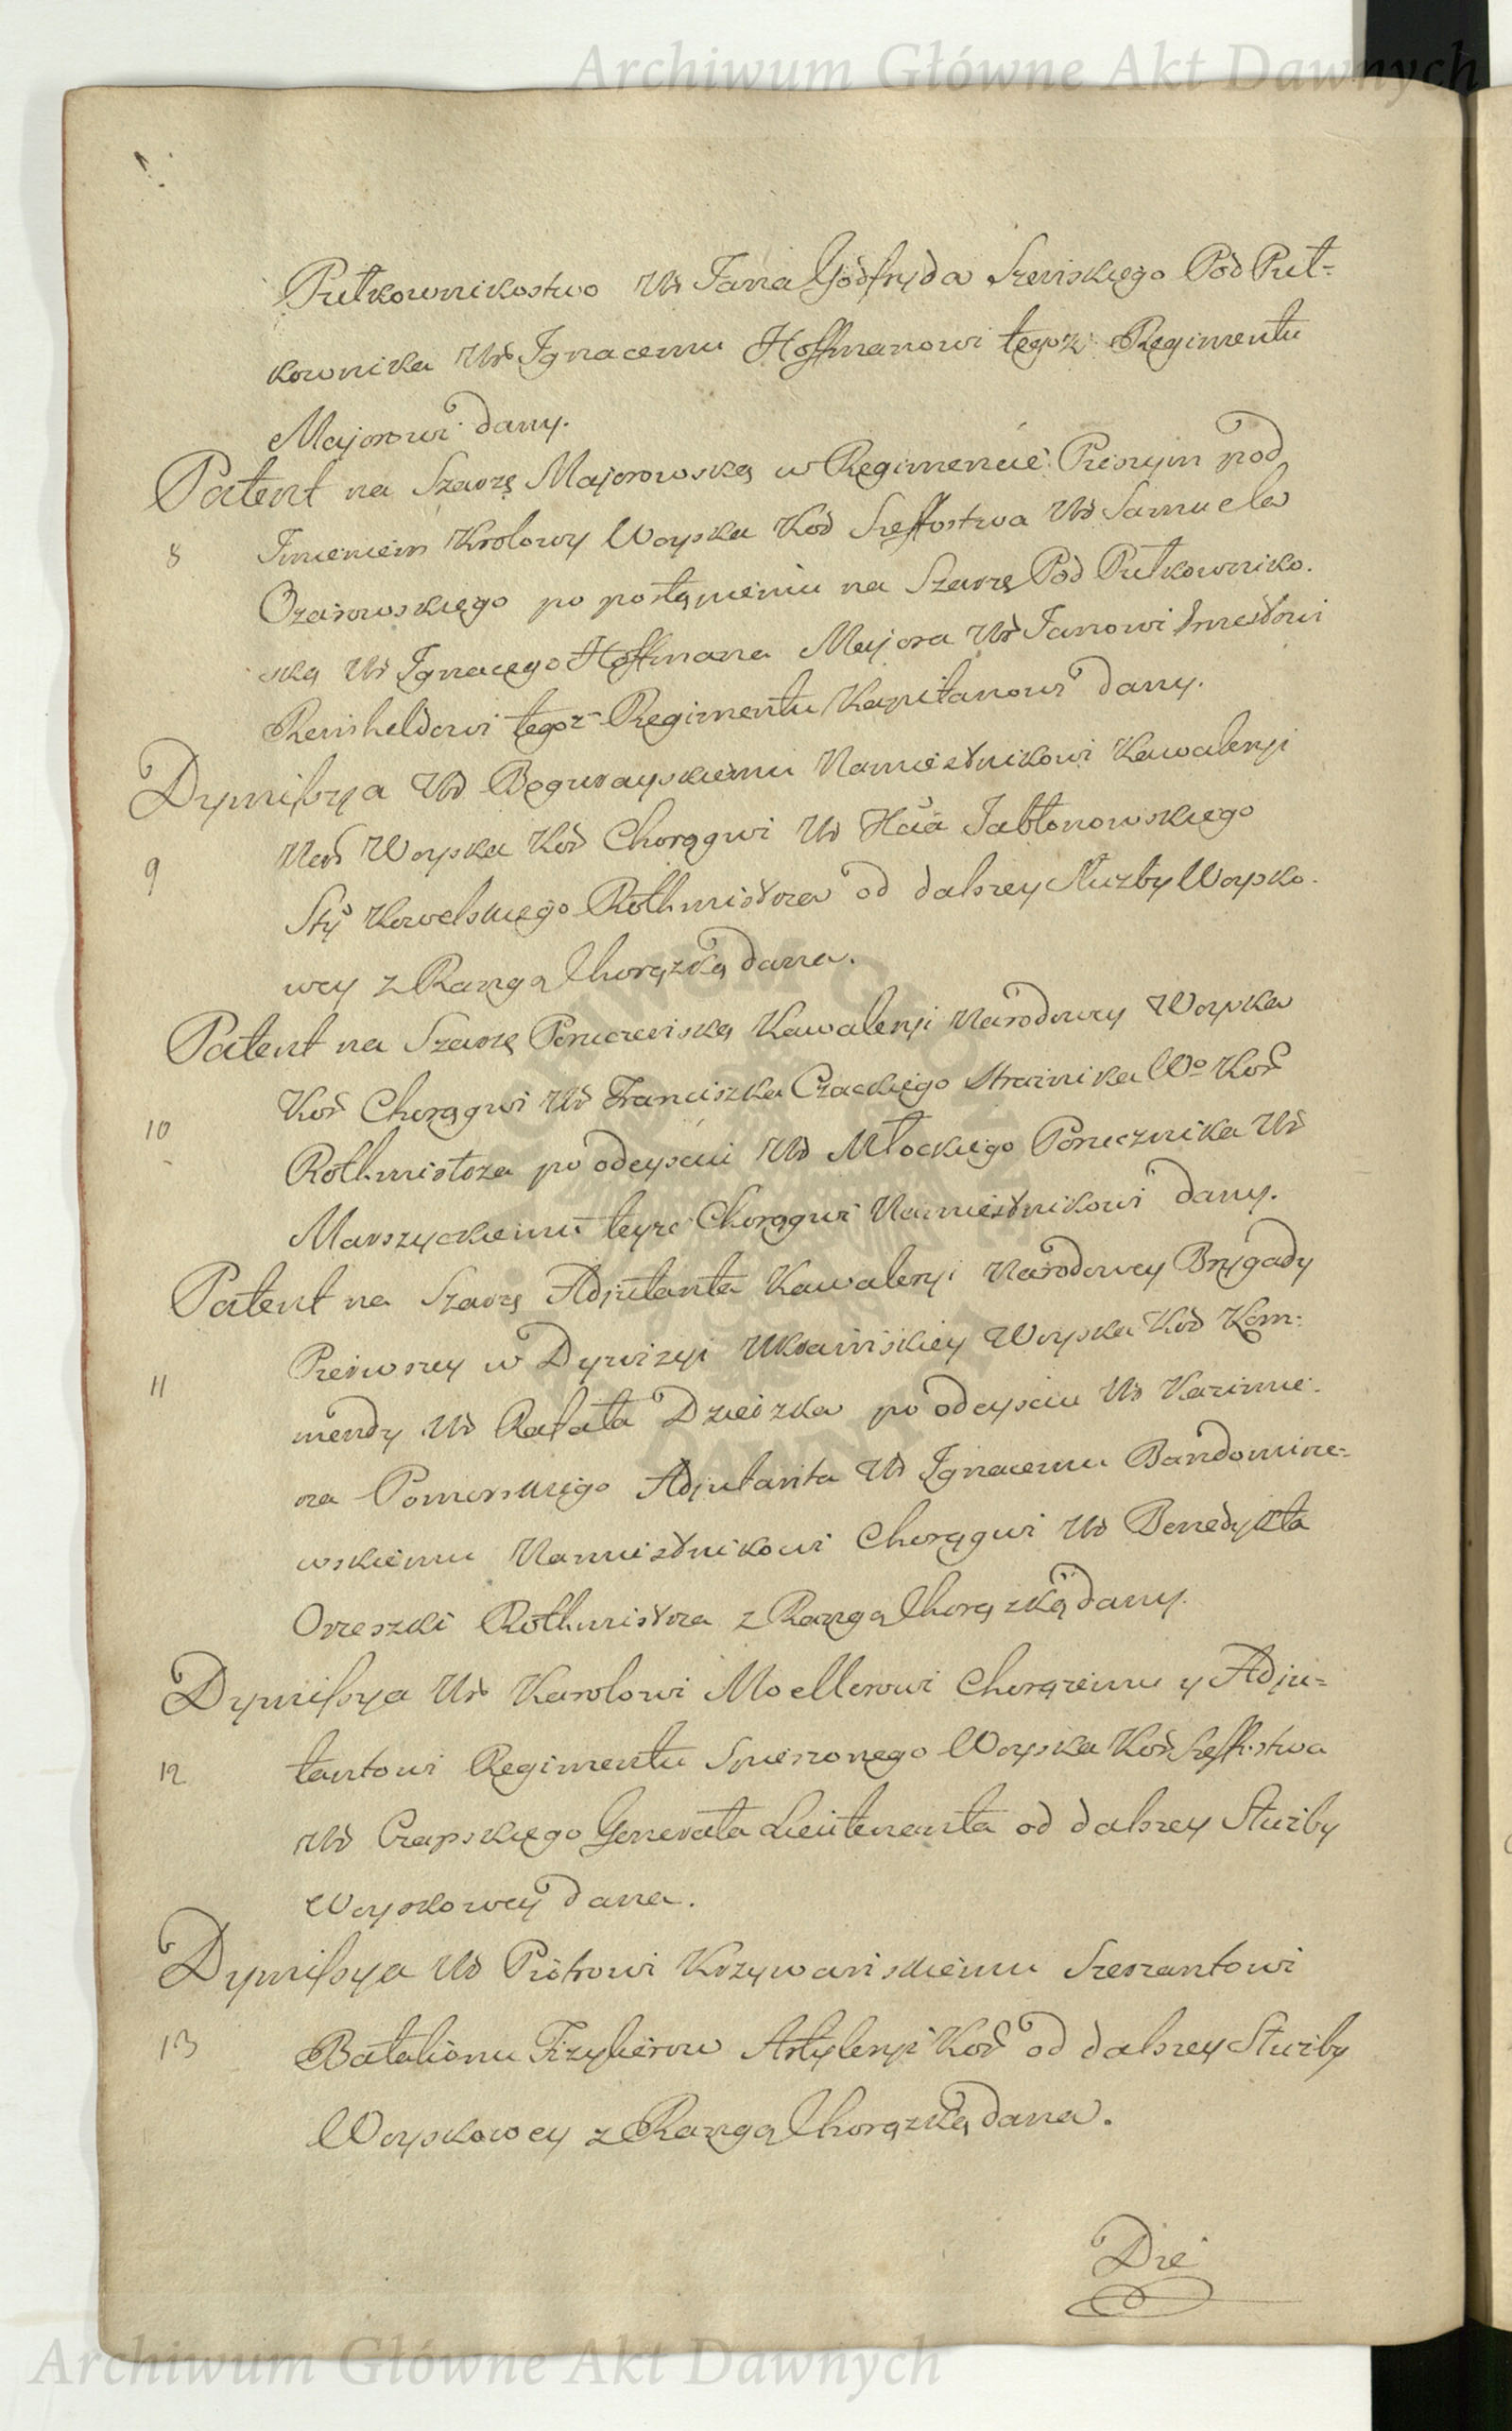 Archiwum Główne Akt Dawnych
Pułkownikostwo Ur Jana Godfryda Szeniskiego Pod Puł=
kownika Ur Ignacemu Hoffmanowi tegoż Regimentu
Majorowi dany.
Patent na Szarżę Majorowską w Regimencie Pieszym pod
8 Imieniem Krolowy Woyska Kor Szeffostwa Ur Samuela
Ożarowskiego po postąpieniu na Szarżę Pod Pułkowniko.
ską Ur Ignacego Hoffmana Majora Ur Janowi Ernestowi
Reinheldowi tegoż Regimentu Kapitanowi dany.
Dymissya Ur Boguszayskiemu Namiestnikowi Kawaleryi
9 Nar Woyska Kor Chorągwi Ur Jabłonowskiego
Stty Kowelskiego Rothmistrza od dalszey Służby Woysko.
wey z Rangą Chorążską dana.
Patent na Szarżę Poruczniską Kawaleryi Narodowey Woyska
10 Kor Chorągwi Ur Franciszka Czackiego Strażnika Wo Kor
Rothmistrza po odeysciu Ur Młockiego Porucznika Ur
Marszyckiemu teyże Chorągwi Namiestnikowi dany.
Patent na Szarżę Adjutanta Kawaleryi Narodowey Brygady
11 Pierwszey w Dywizyi Ukrainskiey Woyska Kor Kom:
mendy Ur Rafała Dzieiżka po odeysciu Ur Kazimie.
rza Pomorskiego Adjutanta Ur Ignacemu Bandomirze=
wskiemu Namiestnikowi Chorągwi Ur Benedykta
Orzeszki Rothmistrza z Rangą Chorążską dany.
Dymissya Ur Karolowi Moellerowi Chorążemu y Adju=
12 tantowi Regimentu Spieszonego Woyska Kor Szeffostwa
Ur Czapskiego Generała Lieutenanta od dalszey Służby
Woyskowey dana.
Dymissya Ur Piotrowi Krzywanskiemu Szerzantowi
13 Batalionu Fizylierow Artyleryi Kor od dalszey Służby
Woyskowey z Rangą Chorążską dana.
Die
Archiwum Główne Akt Dawnych